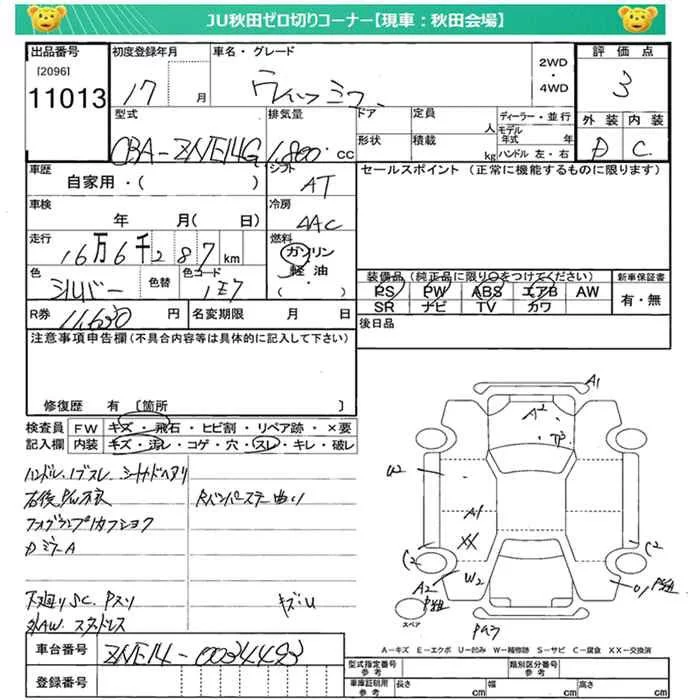 JU秋田ゼロ切りコーナー【現車：秋田会場】
出品番号 初度登録年月 車名・グレード 評価点
[2096]
11013
17 月
2WD
・
4WD
3
外装 内装
D C
型式 排気量 ドア 定員 人 ディーラー・並行
CBA-ZNE14G 1,800 CC 形状 積載 kg モデル年式 年
ハンドル 左・右
車歴 シフト セールスポイント（正常に機能するものに限ります）
自家用・( ) AT
車検 冷房
年 月( 日) AAC
走行 燃料
16万6千287km ガソリン
軽油
・
( )
色 シルバー 色替 色コード 1E7
装備品（純正品に限り○をつけてください） 新車保証書
PS PW ABS エアB AW 有・無
SR ナビ TV カワ
R券 11,630 円 名変期限 月 日 後日品
注意事項申告欄（不具合内容等は具体的に記入して下さい）
修復歴 有〔箇所 〕
検査員 FW キズ・飛石・ヒビ割・リペア跡・×要
記入欄 内装 キズ・汚レ・コゲ・穴・スレ・キレ・破レ
ハンドル、ノブスレ
フォグランプ
DミラーA
下廻りSC. Pスリ キズU
社外AW スタッドレス
A1
A2
U2
A1
XX
C2
C2
W2
A2
スペア
A－キズ E－エクボ U－凹み W－補修跡 S－サビ C－腐食 XX－交換済
車台番号 ZNE14-0034493
登録番号
型式指定番号 参考 類別区分番号 参考
車庫証明用 参考 長さ cm 幅 cm 高さ cm